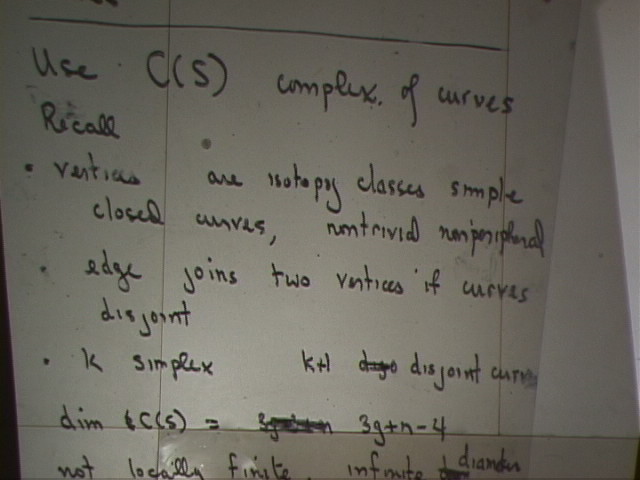 Use C(S) complex of curves
Recall
• vertices are isotopy classes simple
closed curves, nontrivial nonperipheral
• edge joins two vertices if curves
disjoint
• k simplex k+1 disjoint curves
dim C(S) = 3g+n-4
not locally finite. infinite diameter